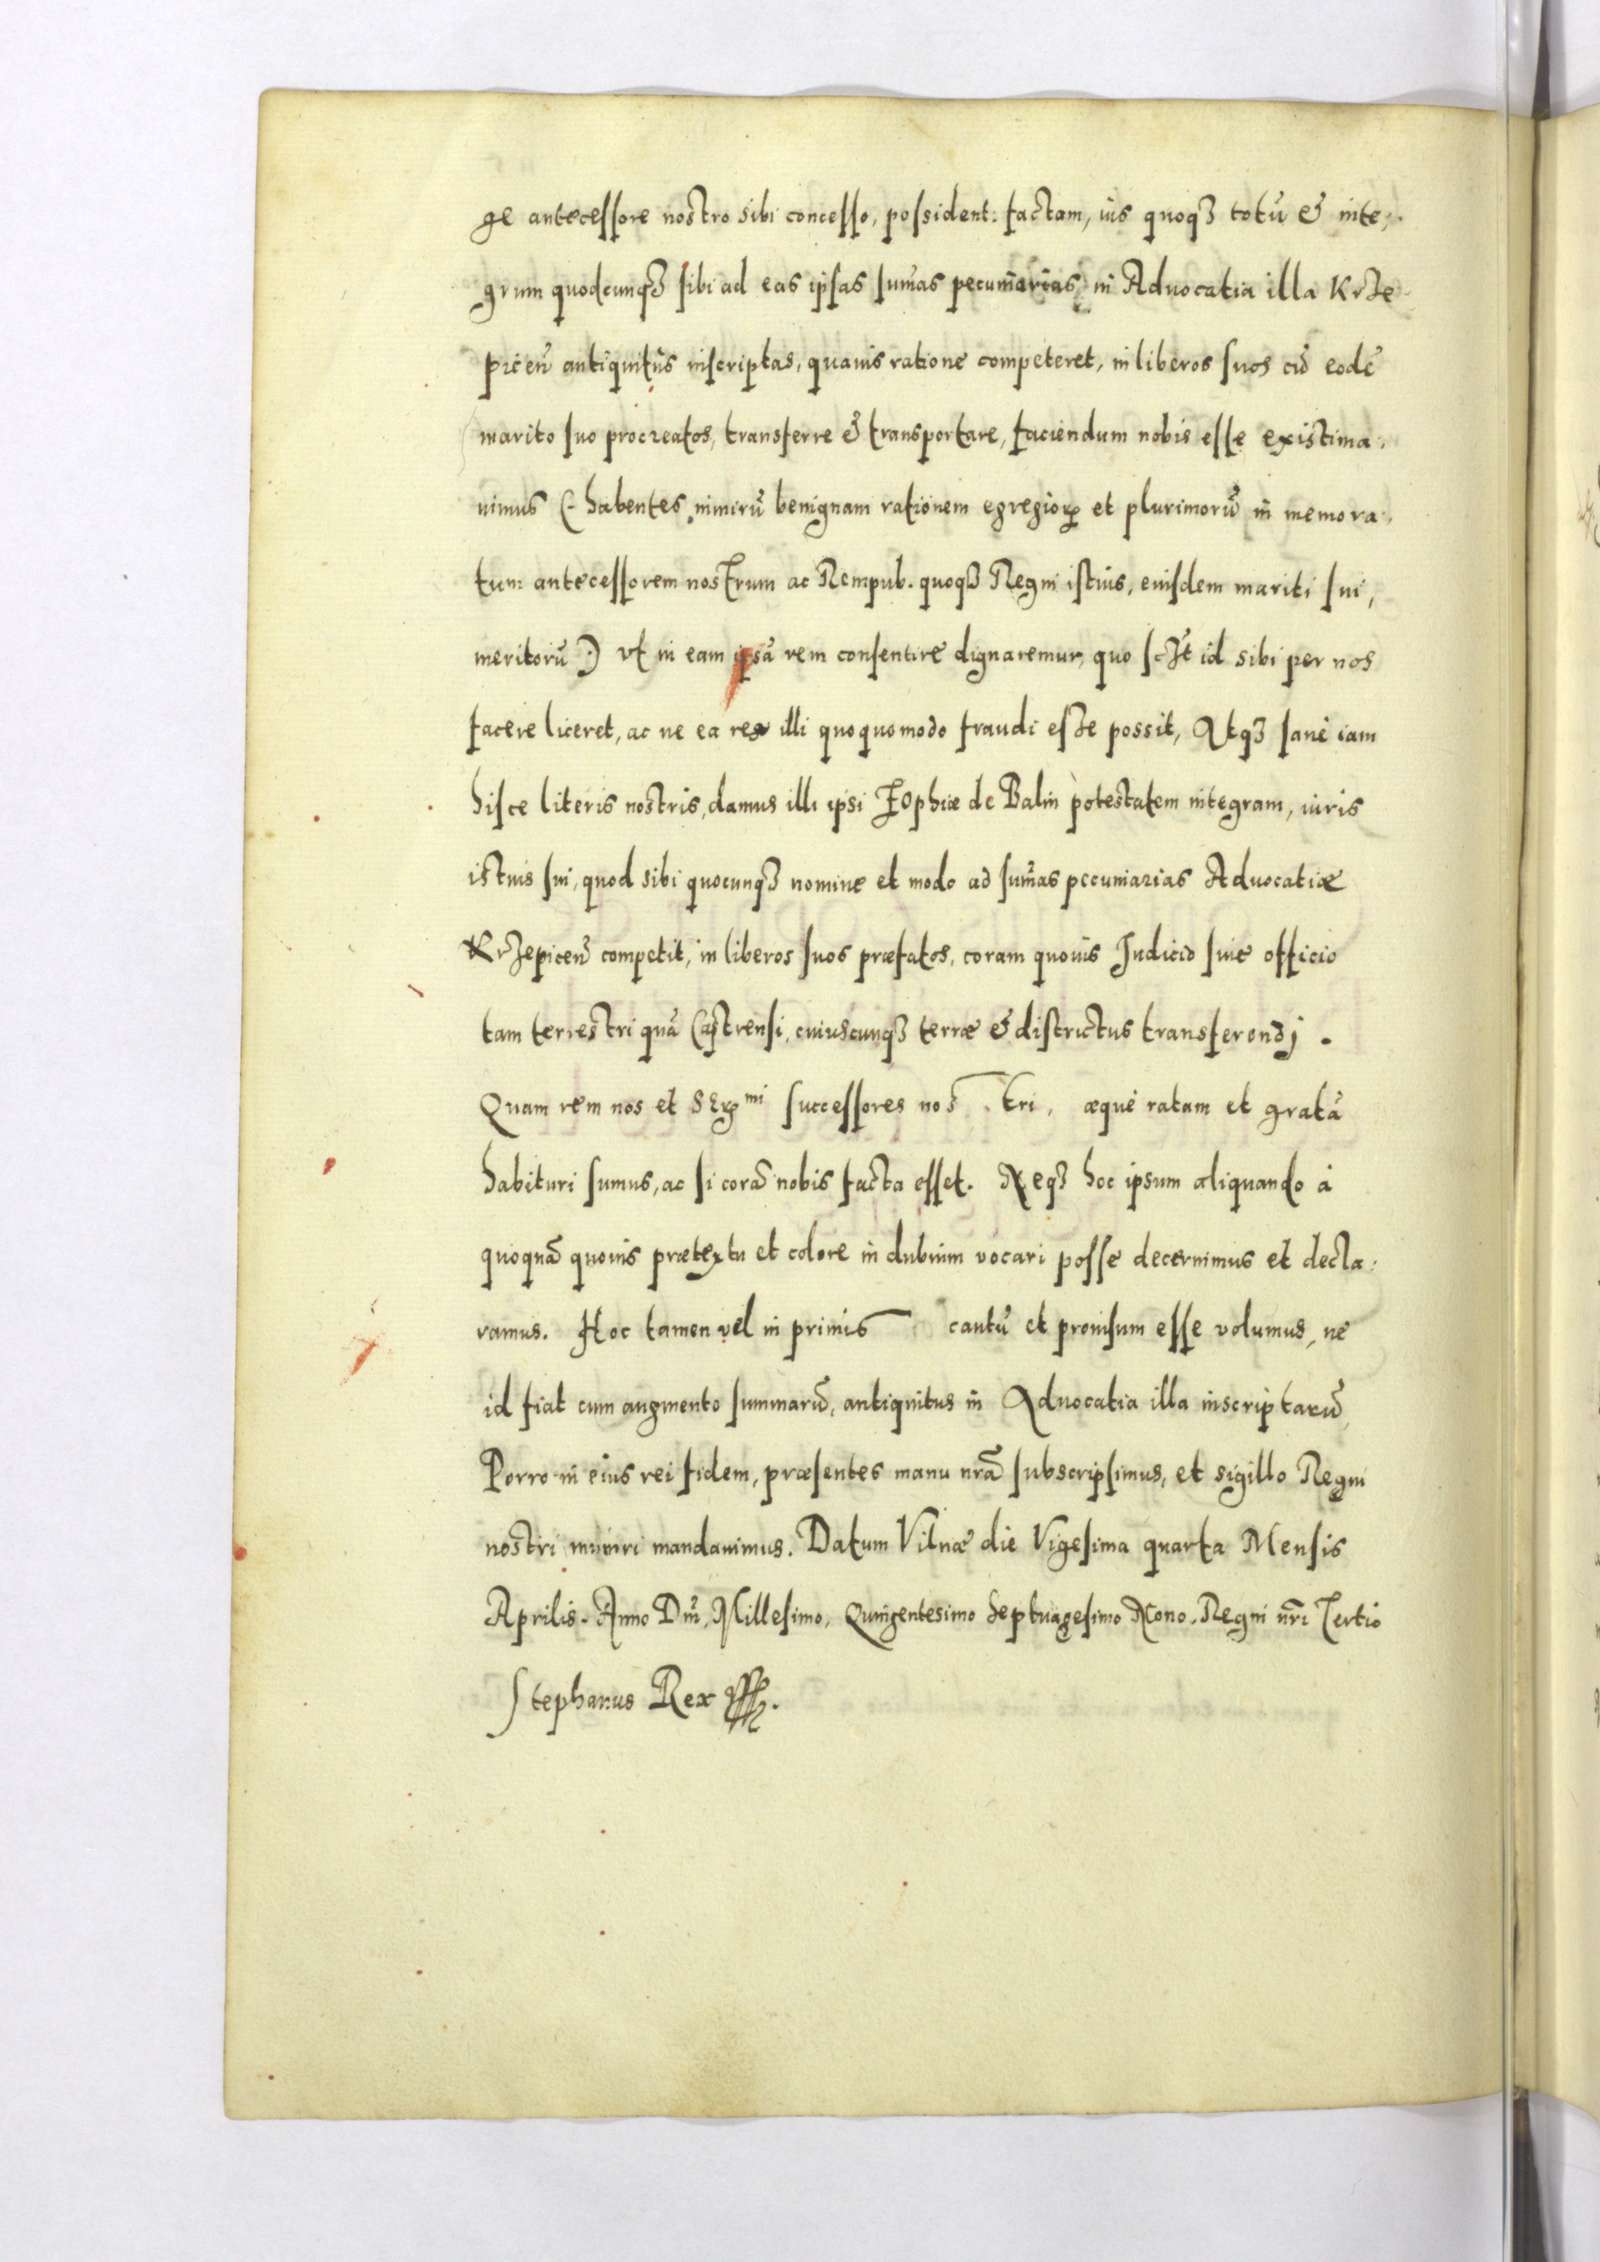 ge antecessore nostro sibi concesso, possident: factam, ius quoqꝫ totũ & inte-
grum quodcunqꝫ sibi ad eas ipsas sum̃as pecuniarias in Advocatia illa Krze-
piceñ antiquitus inscriptas, quavis ratione competeret, in liberos suos cũ eodẽ
marito suo procreatos, transferre & transportare, faciendum nobis esse existima-
uimus (- habentes nimirũ benignam rationem egregioꝝ et plurimorũ in memora-
tum antecessorem nostrum ac Rempub. quoqꝫ Regni istius, eiusdem mariti sui,
meritorũ) vt in eam ipsã rem consentire dignaremur, quo sczt id sibi per nos
facere liceret, ac ne ea res illi quoquomodo fraudi esse possit, Atqꝫ sanè iam
hisce literis nostris, damus illi ipsi Zophiæ de Balin potestatem integram, iuris
istius sui, quod sibi quocunqꝫ nomine et modo ad sum̃as pecuniarias Advocatiæ
Krzepiceñ competit, in liberos suos præfatos, coram quovis Judicio sive officio
tam terrestri quã Castrensi, cuiuscunqꝫ terræ & districtus transferendj.
Quam rem nos et Seꝝmi successores nos tri, æquè ratam et gratã
habituri sumus, ac si corã nobis facta esset. Neqꝫ hoc ipsum aliquando à
quoquã quovis prætextu et colore in dubium vocari posse decernimus et decla-
ramus. Hoc tamen vel in primis cautũ et provisum esse volumus, ne
id fiat cum augmento summarũ, antiquitus in Advocatia illa inscriptarũ,
Porro in eius rei fidem, præsentes manu nr̃a subscripsimus, et sigillo Regni
nostri muniri mandavimus. Datum Vilnæ die Vigesima quarta Mensis
Aprilis. Anno Dñi, Millesimo, Quingentesimo Septuagesimo Nono. Regni nr̃i Tertio
Stephanus Rex